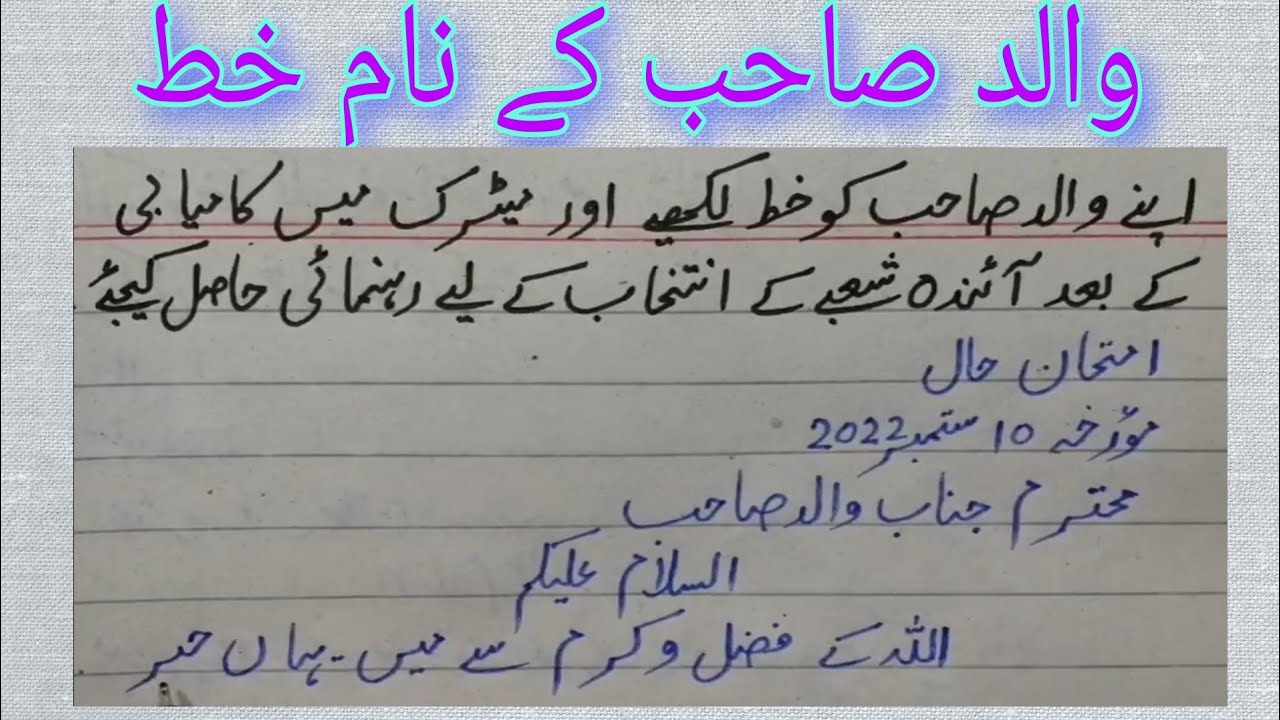 والد صاحب کے نام خط
اپنے والد صاحب کو خط لکھیے اور میٹرک میں کامیابی
کے بعد آئندہ شعبے کے انتخاب کے لیے رہنمائی حاصل کیجئے
امتحان حال
مؤرخہ 10 ستمبر 2022
محترم جناب والد صاحب
السلام علیکم
اللہ کے فضل و کرم سے میں یہاں خیر